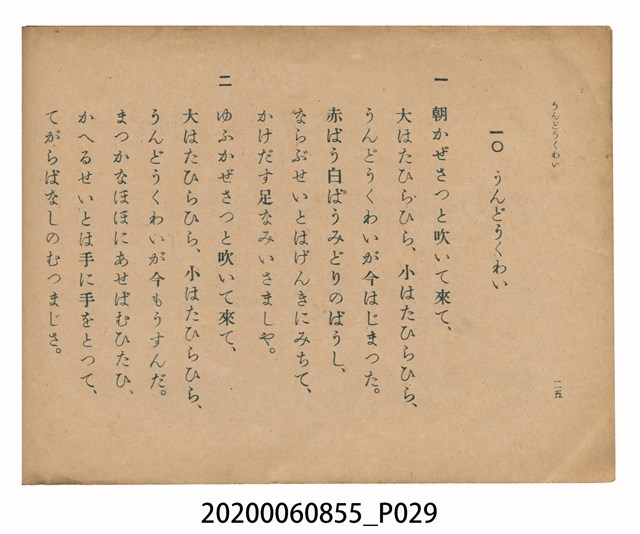 うんどうくわい
一〇 うんどうくわい
一 朝かぜさつと吹いて來て、
大はたひらひら、小はたひらひら、
うんどうくわいが今はじまつた。
赤ばう白ばうみどりのばうし、
ならぶせいとはげんきにみちて、
かけだす足なみいさましや。
二 ゆふかぜさつと吹いて來て、
大はたひらひら、小はたひらひら、
うんどうくわいが今もうすんだ。
まつかなほほにあせばむひたひ、
かへるせいとは手に手をとつて、
てがらばなしのむつまじさ。
二五
20200060855_P029